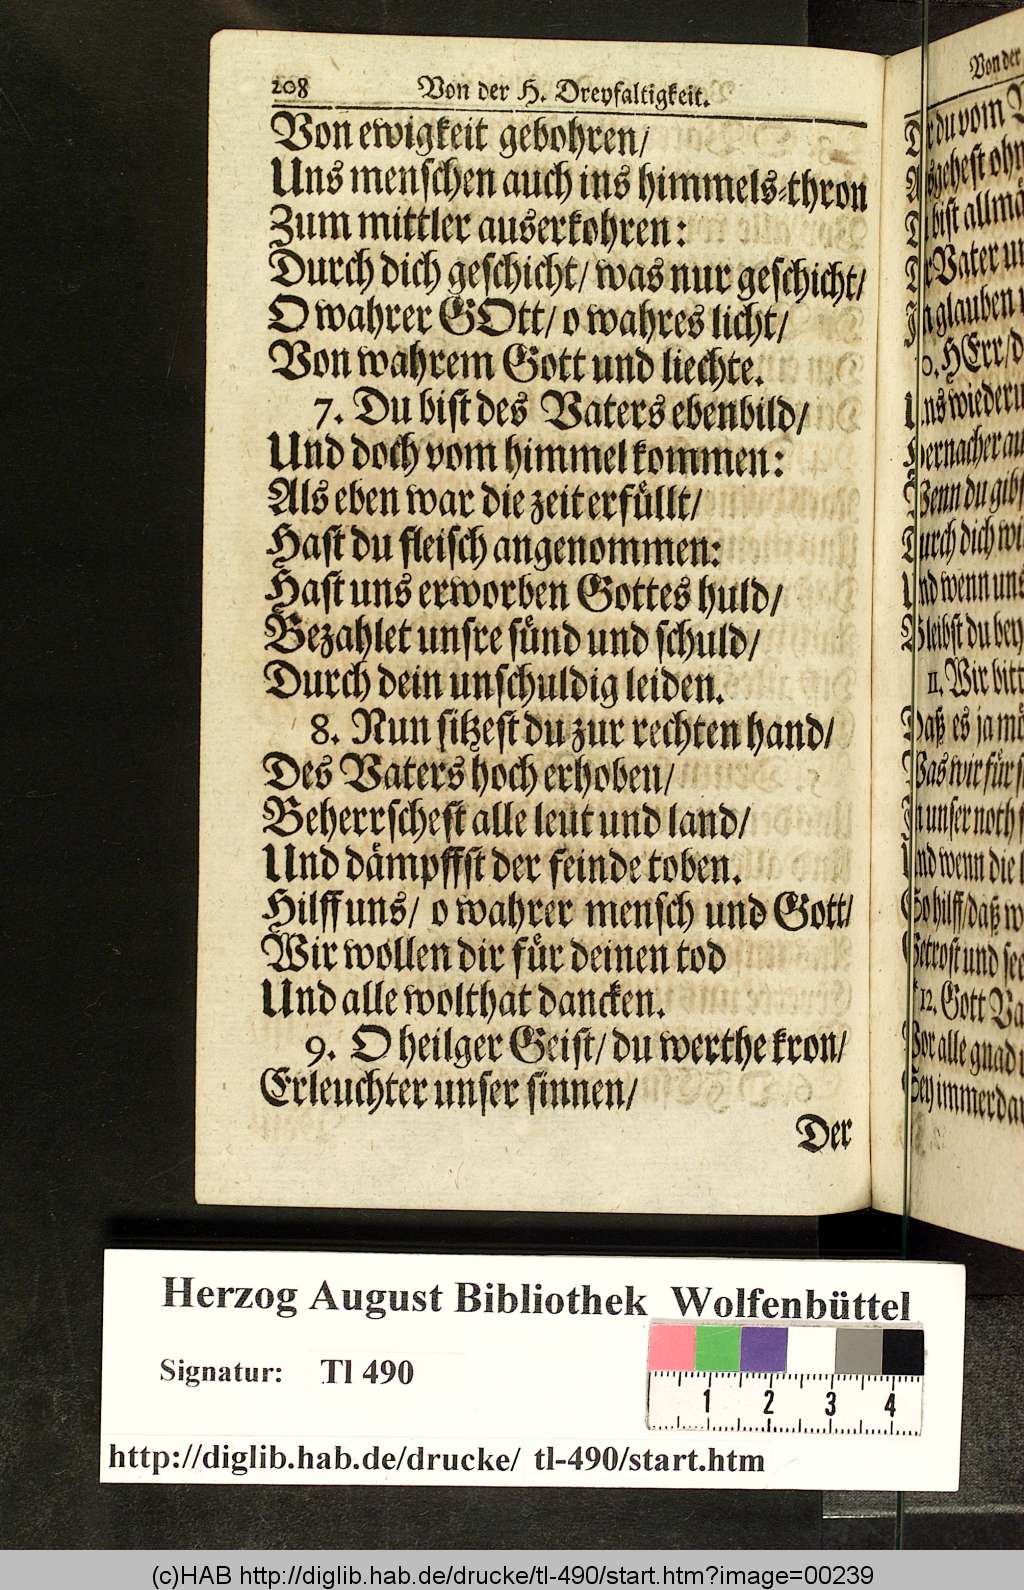 208 Von der H. Dreyfaltigkeit.
Von ewigkeit gebohren/
Uns menschen auch ins himmels-thron
Zum mittler auserkohren:
Durch dich geschicht/ was nur geschicht/
O wahrer GOtt/ o wahres licht/
Von wahrem Gott und liechte.
7. Du bist des Vaters ebenbild/
Und doch vom himmel kommen:
Als eben war die zeit erfüllt/
Hast du fleisch angenommen:
Hast uns erworben Gottes huld/
Bezahlet unsre sünd und schuld/
Durch dein unschuldig leiden.
8. Nun sitzest du zur rechten hand/
Des Vaters hoch erhoben/
Beherrschest alle leut und land/
Und dämpffst der feinde toben.
Hilff uns/ o wahrer mensch und Gott/
Wir wollen dir für deinen tod
Und alle wolthat dancken.
9. O heilger Geist/ du werthe kron/
Erleuchter unser sinnen/
Der
Von der
du vom
ohn
bist allmä
Vater un
glauben
HErr/ d
wiederu
hernacher au
Wenn du gibst
Durch dich wi
Und wenn uns
Bleibst du bey
11. Wir bitt
Daß es ja mö
Was wir für
In unser noth
Und wenn die
So hilff/ daß w
Getrost und see
12. Gott Va
Vor alle gnad
Sey immerdar
Herzog August Bibliothek Wolfenbüttel
Signatur: Tl 490
1 2 3 4
http://diglib.hab.de/drucke/ tl-490/start.htm
(c)HAB http://diglib.hab.de/drucke/tl-490/start.htm?image=00239